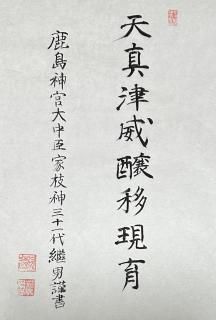 天真津威醸移現育
鹿島神宮大中臣家枝神三十一代繼男謹書